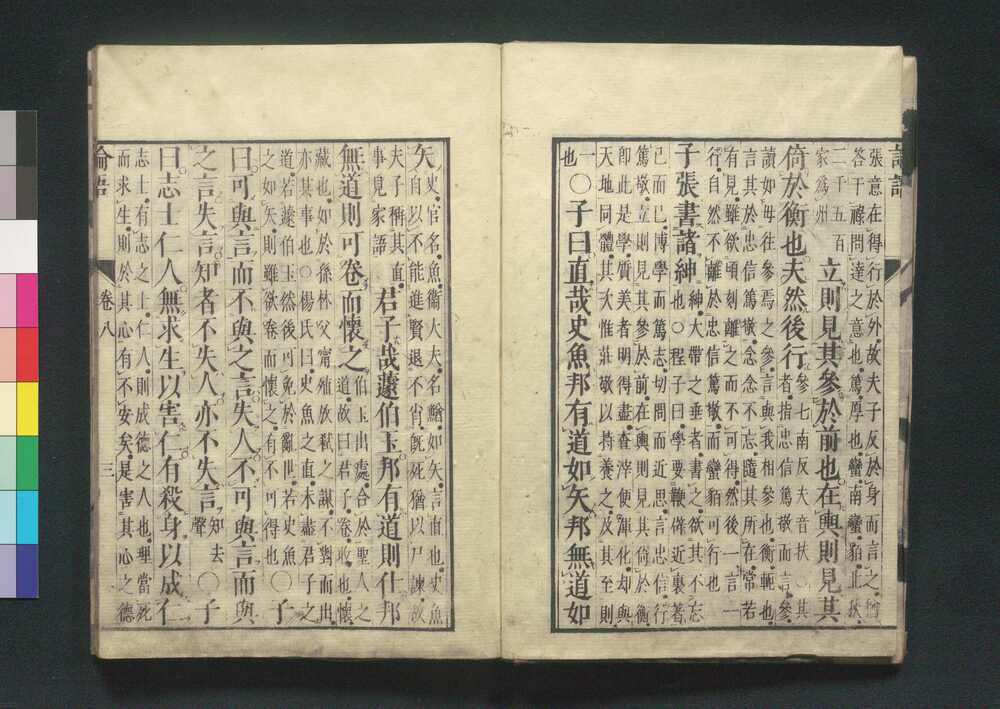 論語
張意在得行於外故夫子反於身而言之猶
答干祿問達之意也篤厚也蠻南蠻貊北狄
二千五百
家爲州
立則見其參於前也在輿則見其
倚於衡也夫然後行
參七南反夫音扶○其
者指忠信篤敬而言參
讀如毋往參焉之參言與我相參也衡軛也
言其於忠信篤敬念念不忘隨其所在常若
有見雖欲頃刻離之而不可得然後一言一
行自然不離於忠信篤敬而蠻貊可行也
子張書諸紳
紳大帶之垂者書之欲其不忘
也○程子曰學要鞭辟近裏著
己而已博學而篤志切問而近思言忠信行
篤敬立則見其參於前在輿則見其倚於衡
即此是學質美者明得盡査滓便渾化却與
天地同體其次惟莊敬以持養之及其至則
一
也
○子曰直哉史魚邦有道如矢邦無道如
矢
史官名魚衞大夫名鰌如矢言直也史魚
自以不能進賢退不肖旣死猶以尸諫故
夫子稱其直
事見家語
君子哉蘧伯玉邦有道則仕邦
無道則可卷而懷之
伯玉出處合於聖人之
道故曰君子卷收也懷
藏也如於孫林父甯殖放弑之謀不對而出
亦其事也○楊氏曰史魚之直未盡君子之
道若蘧伯玉然後可免於亂世若史魚
之如矢則雖欲卷而懷之有不可得也
○子
曰可與言而不與之言失人不可與言而與
之言失言知者不失人亦不失言
知去
聲
○子
曰志士仁人無求生以害仁有殺身以成仁
志士有志之士仁人則成德之人也理當死
而求生則於其心有不安矣是害其心之德
論語
卷八
三